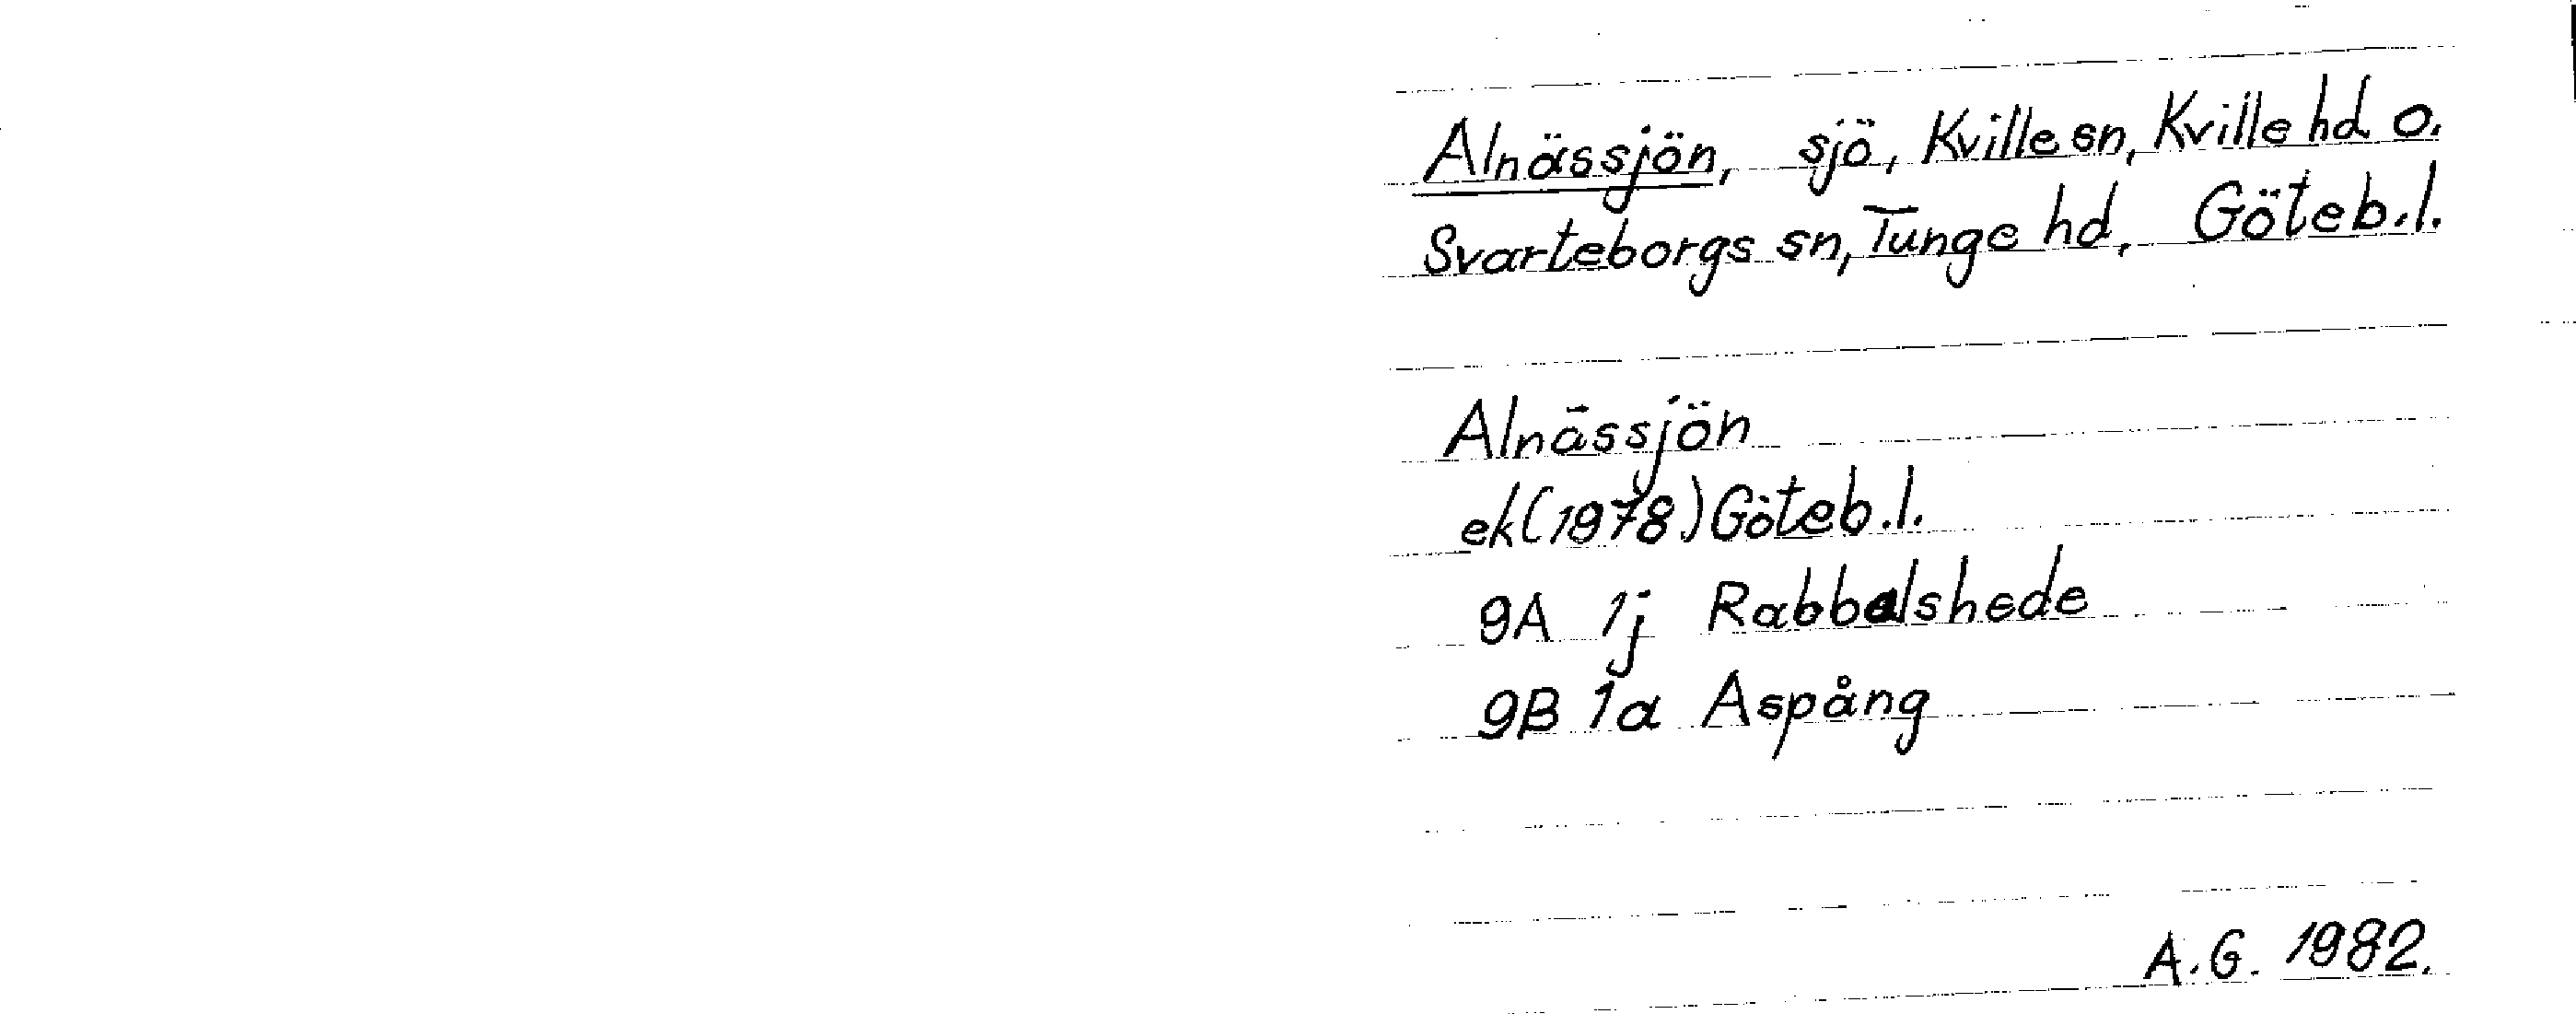 Alnässjön, sjö, Kville sn, Kville hd o.
Svarteborgs sn, Tunge hd, Göteb.l.
Alnässjön
ek (1978) Göteb.l.
9A 1j Rabbalshede
9B 1a Aspång
A.G. 1982.